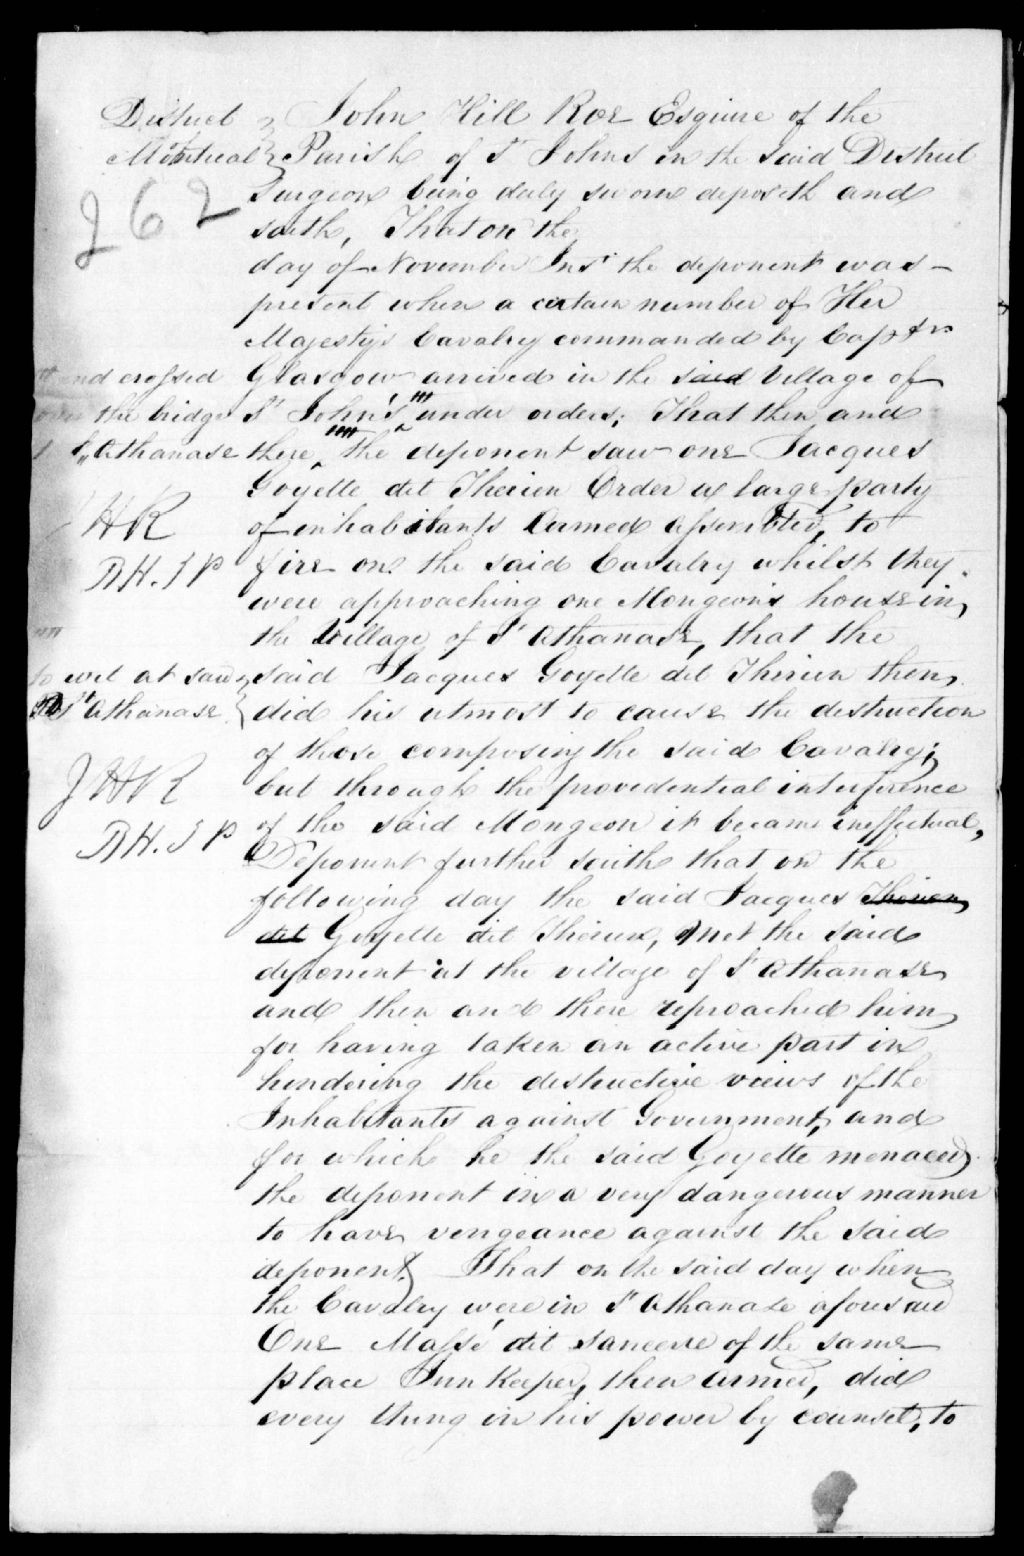 District } John Hill Roe Esquire of the
Montreal } Parish of St Johns in the said District
262
Surgeon being duly sworn deposeth and
saith, That on the
day of November Inst the deponent was
present when a certain number of Her
Majestys Cavalry commanded by Captn
and crossed
Glasgow arrived in the said Village of
the bridge
St John's under orders; That then and
St Athanase
there, the deponent saw one Jacques
Goyette dit Therien Order a large party
JHR
of inhabitants Armed assembled, to
RH. J P
fire on the said Cavalry whilst they
were approaching one Mongeon's house in
the Village of St Athanase, that the
to wit at said
said Jacques Goyette dit Therien then
St Athanase
did his utmost to cause the destruction
of those composing the said Cavalry;
JHR
but through the providential interference
RH. J P
of the said Mongeon it became ineffectual,
Deponent further saith that on the
following day the said Jacques Therien
dit Goyette dit Therien, met the said
deponent at the village of St Athanase
and then and there reproached him
for having taken an active part in
hindering the destructive views of the
Inhabitants against Government, and
for which he the said Goyette menaced
the deponent in a very dangerous manner
to have vengeance against the said
deponent. That on the said day when
the Cavalry were in St Athanase aforesaid
One Massé dit Sancerre of the same
place Inn Keeper, then armed, did
every thing in his power by counsel, to